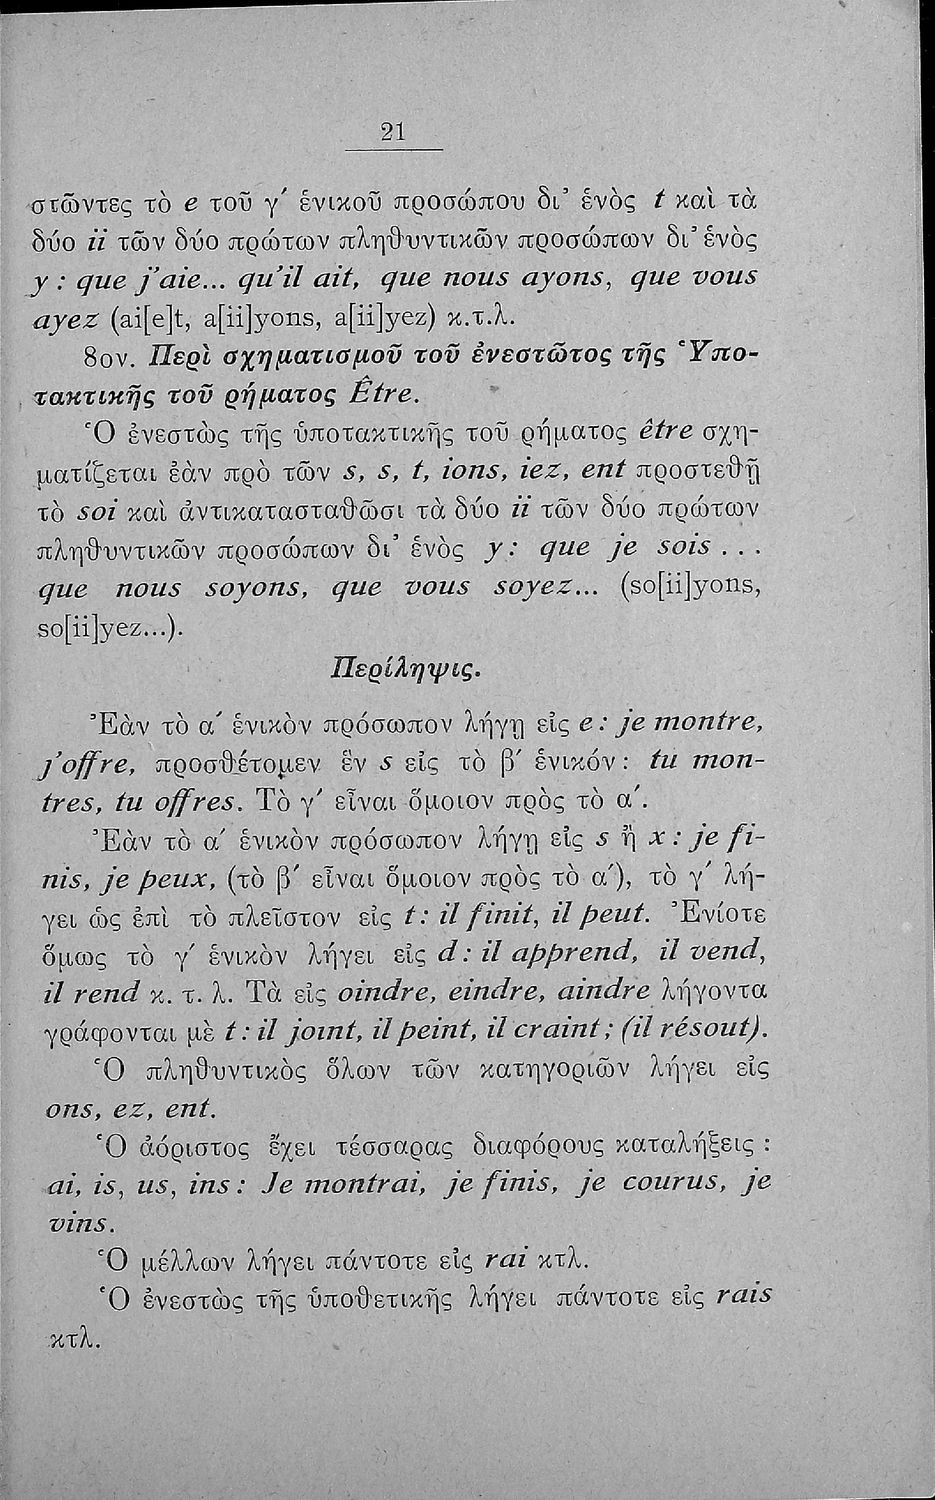 21
στῶντες τὸ e τοῦ γ΄ ἑνικοῦ προσώπου δι’ ἑνὸς t καὶ τὰ
δύο ii τῶν δύο πρώτων πληθυντικῶν προσώπων δι’ ἑνὸς
y : que j’aie... qu’il ait, que nous ayons, que vous
ayez (ai[e]t, a[ii]yons, a[ii]yez) κ.τ.λ.
8ον. Περὶ σχηματισμοῦ τοῦ ἐνεστῶτος τῆς Ὑπο-
τακτικῆς τοῦ ρήματος Être.
Ὁ ἐνεστὼς τῆς ὑποτακτικῆς τοῦ ρήματος être σχη-
ματίζεται ἐὰν πρὸ τῶν s, s, t, ions, iez, ent προστεθῇ
τὸ soi καὶ ἀντικατασταθῶσι τὰ δύο ii τῶν δύο πρώτων
πληθυντικῶν προσώπων δι’ ἑνὸς y : que je sois . . .
que nous soyons, que vous soyez... (so[ii]yons,
so[ii]yez...).
Περίληψις.
Ἐὰν τὸ α΄ ἑνικὸν πρόσωπον λήγῃ εἰς e : je montre,
j’offre, προσθέτομεν ἓν s εἰς τὸ β΄ ἑνικόν : tu mon-
tres, tu offres. Τὸ γ΄ εἶναι ὅμοιον πρὸς τὸ α΄.
Ἐὰν τὸ α΄ ἑνικὸν πρόσωπον λήγῃ εἰς s ἢ x : je fi-
nis, je peux, (τὸ β΄ εἶναι ὅμοιον πρὸς τὸ α΄), τὸ γ΄ λή-
γει ὡς ἐπὶ τὸ πλεῖστον εἰς t : il finit, il peut. Ἐνίοτε
ὅμως τὸ γ΄ ἑνικὸν λήγει εἰς d : il apprend, il vend,
il rend κ. τ. λ. Τὰ εἰς oindre, eindre, aindre λήγοντα
γράφονται μὲ t : il joint, il peint, il craint ; (il résout).
Ὁ πληθυντικὸς ὅλων τῶν κατηγοριῶν λήγει εἰς
ons, ez, ent.
Ὁ ἀόριστος ἔχει τέσσαρας διαφόρους καταλήξεις :
ai, is, us, ins : Je montrai, je finis, je courus, je
vins.
Ὁ μέλλων λήγει πάντοτε εἰς rai κτλ.
Ὁ ἐνεστὼς τῆς ὑποθετικῆς λήγει πάντοτε εἰς rais
κτλ.